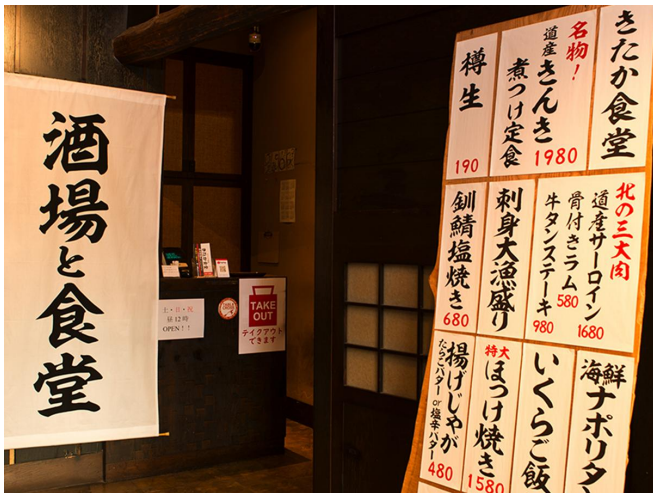 酒場と食堂
土・日・祝
昼12時
OPEN!!
TAKE
OUT
テイクアウト
できます
きたか食堂
名物!
道産きんき
煮つけ定食
1980
樽生
190
北の三大肉
道産サーロイン
1680
骨付きラム
580
牛タンステーキ
980
刺身大漁盛り
釧鯖塩焼き
680
海鮮
ナポリタ
いくらご飯
特大
ほっけ焼き
1580
揚げじゃが
たらこバター or 塩辛バター
480